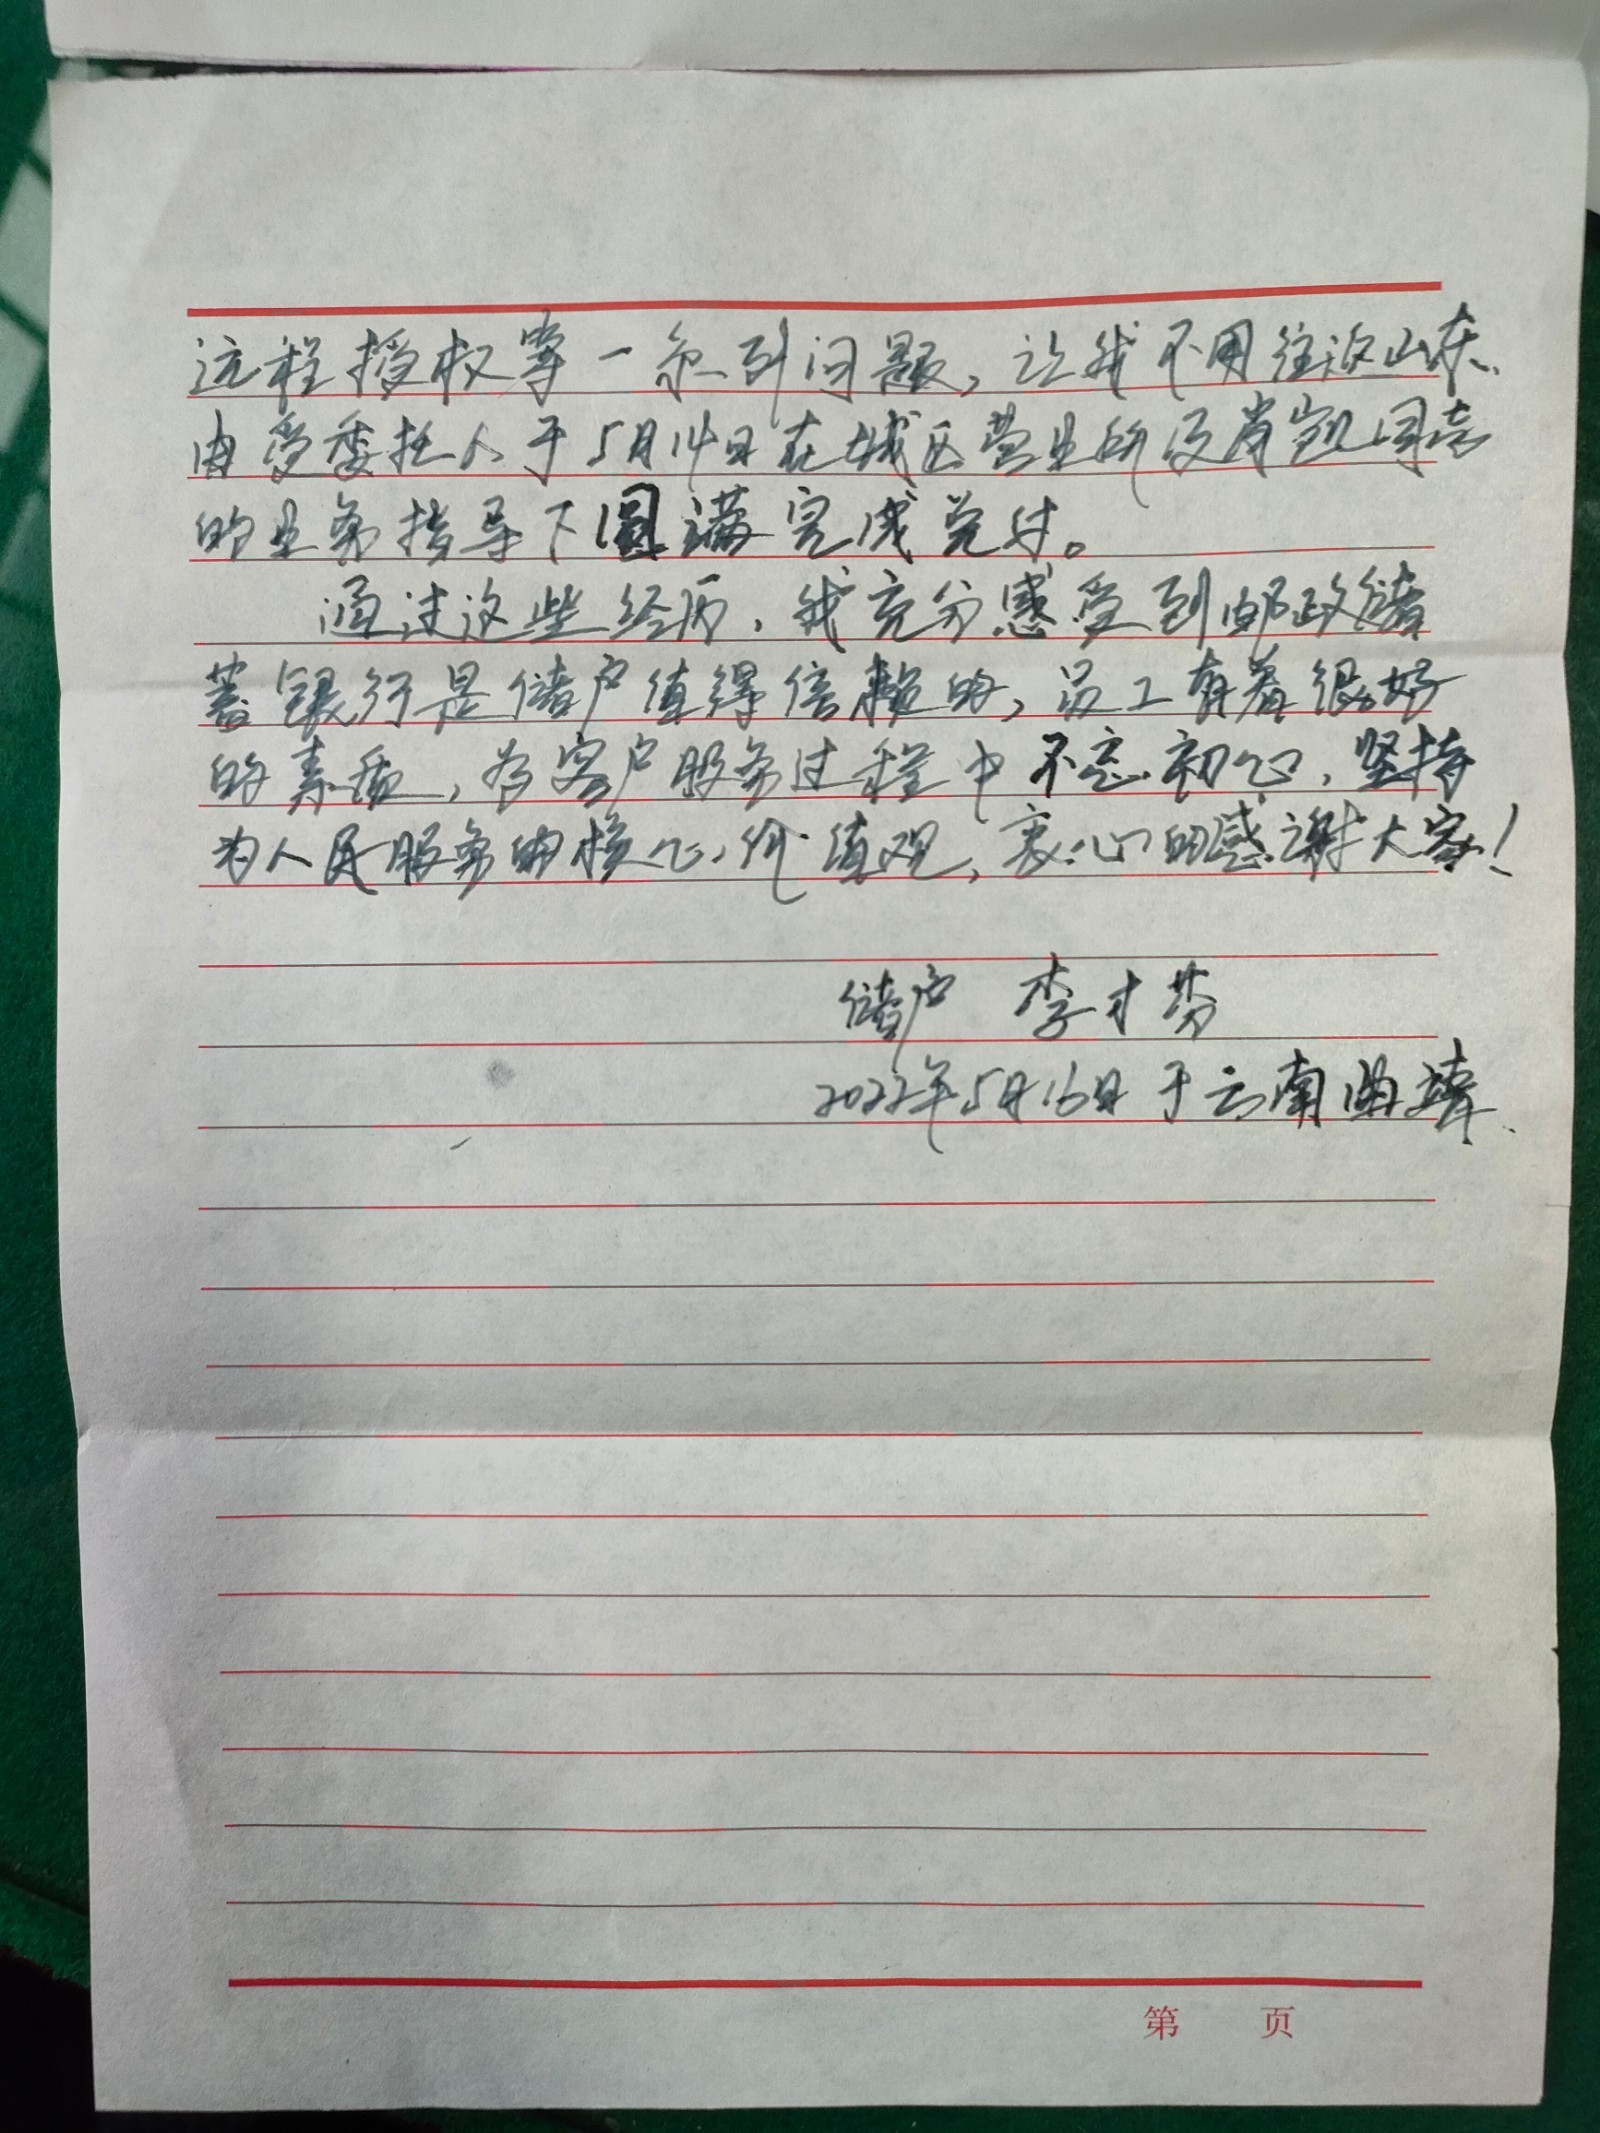 远程授权等一系列问题，让我不用往返山东、
由受委托人于5月14日在城区营业所及肖凯同志
的业务指导下圆满完成兑付。
通过这些经历，我充分感受到邮政储
蓄银行是储户值得信赖的，员工有着很好
的素质，为客户服务过程中不忘初心，坚持
为人民服务的核心价值观，衷心的感谢大家！
储户 李才芬
2022年5月16日于云南曲靖
第 页